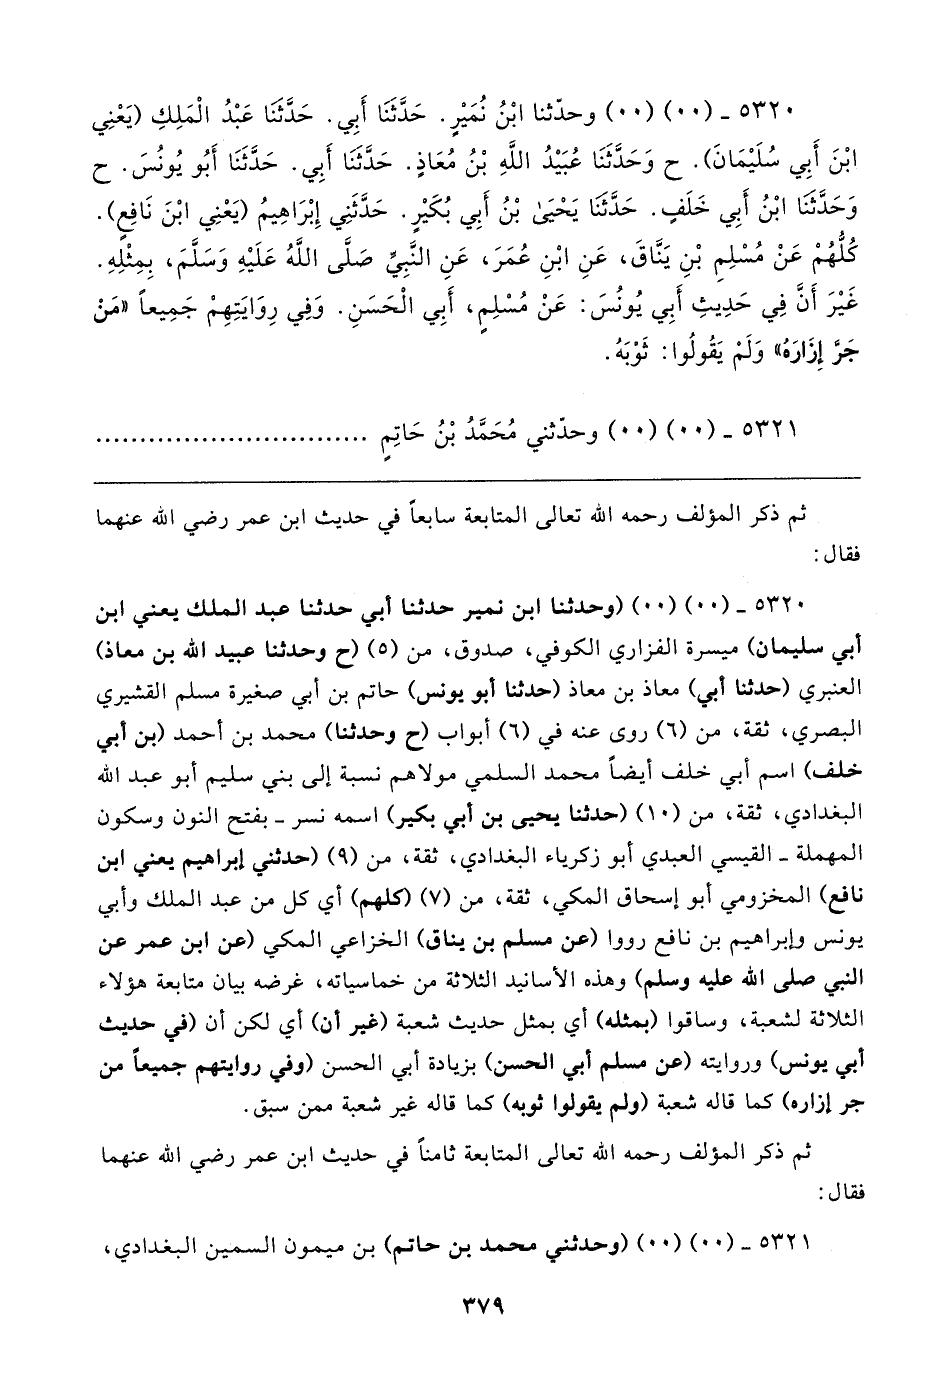 ٥٣٢٠ ـ (٠٠) (٠٠) وحدّثنا ابْنُ نُمَيْرٍ. حَدَّثَنَا أَبِي. حَدَّثَنَا عَبْدُ الْمَلِكِ (يَعْنِي
ابْنَ أَبِي سُلَيْمَانَ). ح وَحَدَّثَنَا عُبَيْدُ اللَّهِ بْنُ مُعَاذٍ. حَدَّثَنَا أَبِي. حَدَّثَنَا أَبُو يُونُسَ. ح
وَحَدَّثَنَا ابْنُ أَبِي خَلَفٍ. حَدَّثَنَا يَحْيَىٰ بْنُ أَبِي بُكَيْرٍ. حَدَّثَنِي إِبْرَاهِيمُ (يَعْنِي ابْنَ نَافِعٍ).
كُلُّهُمْ عَنْ مُسْلِمِ بْنِ يَنَّاقَ، عَنِ ابْنِ عُمَرَ، عَنِ النَّبِيِّ صَلَّى اللَّهُ عَلَيْهِ وَسَلَّمَ، بِمِثْلِهِ.
غَيْرَ أَنَّ فِي حَدِيثِ أَبِي يُونُسَ: عَنْ مُسْلِمٍ، أَبِي الْحَسَنِ. وَفِي رِوَايَتِهِمْ جَمِيعاً «مَنْ
جَرَّ إِزَارَهُ» وَلَمْ يَقُولُوا: ثَوْبَهُ.
٥٣٢١ ـ (٠٠) (٠٠) وحدّثني مُحَمَّدُ بْنُ حَاتِمٍ ..............................
ثم ذكر المؤلف رحمه الله تعالى المتابعة سابعاً في حديث ابن عمر رضي الله عنهما
فقال:
٥٣٢٠ ـ (٠٠) (٠٠) (وحدثنا ابن نمير حدثنا أبي حدثنا عبد الملك يعني ابن
أبي سليمان) ميسرة الفزاري الكوفي، صدوق، من (٥) (ح وحدثنا عبيد الله بن معاذ)
العنبري (حدثنا أبي) معاذ بن معاذ (حدثنا أبو يونس) حاتم بن أبي صغيرة مسلم القشيري
البصري، ثقة، من (٦) روى عنه في (٦) أبواب (ح وحدثنا) محمد بن أحمد (بن أبي
خلف) اسم أبي خلف أيضاً محمد السلمي مولاهم نسبة إلى بني سليم أبو عبد الله
البغدادي، ثقة، من (١٠) (حدثنا يحيى بن أبي بكير) اسمه نسر ـ بفتح النون وسكون
المهملة ـ القيسي العبدي أبو زكرياء البغدادي، ثقة، من (٩) (حدثني إبراهيم يعني ابن
نافع) المخزومي أبو إسحاق المكي، ثقة، من (٧) (كلهم) أي كل من عبد الملك وأبي
يونس وإبراهيم بن نافع رووا (عن مسلم بن يناق) الخزاعي المكي (عن ابن عمر عن
النبي صلى الله عليه وسلم) وهذه الأسانيد الثلاثة من خماسياته، غرضه بيان متابعة هؤلاء
الثلاثة لشعبة، وساقوا (بمثله) أي بمثل حديث شعبة (غير أن) أي لكن أن (في حديث
أبي يونس) وروايته (عن مسلم أبي الحسن) بزيادة أبي الحسن (وفي روايتهم جميعاً من
جر إزاره) كما قاله شعبة (ولم يقولوا ثوبه) كما قاله غير شعبة ممن سبق.
ثم ذكر المؤلف رحمه الله تعالى المتابعة ثامناً في حديث ابن عمر رضي الله عنهما
فقال:
٥٣٢١ ـ (٠٠) (٠٠) (وحدثني محمد بن حاتم) بن ميمون السمين البغدادي،
٣٧٩